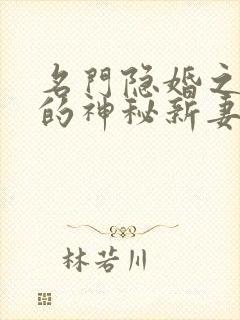 名門隐婚之
的神秘新妻
林若川